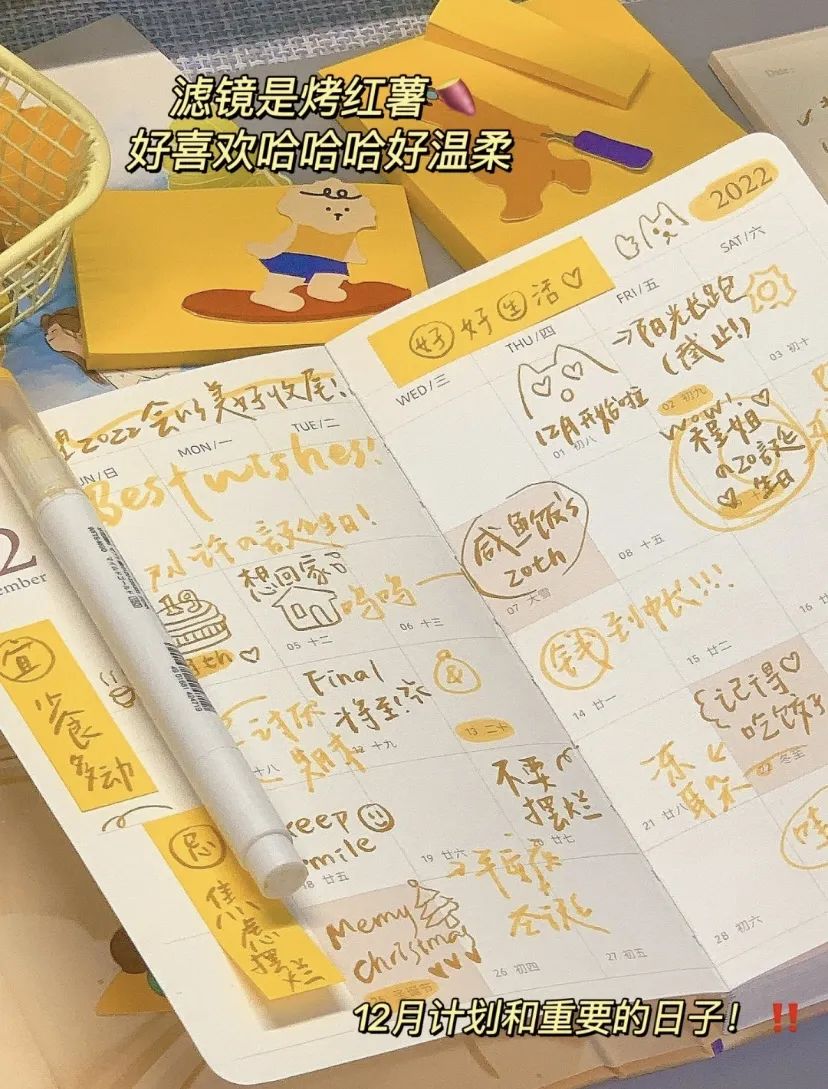 滤镜是烤红薯🍠
好喜欢哈哈哈好温柔
2022
SAT/六
FRI/五
THU/四
WED/三
好好生活♡
→阳光长跑
(截止!)
03 初十
02 初九
12月开始啦
01 初八
2022会以美好收尾!
TUE/二
MON/一
UN/日
Best wishes!
wow!
程姐
の20誕
♡ 生日
咸鱼饭's
20th
07 大雪
08 十五
小许の誕生日!
想回家
呜呜
05 十二
06 十三
ember
宜
少食
多动
钱到帐!!!
14 廿一
15 廿二
16
Final
将至!
13 二十
十九
十八
记得♡
吃饺子
冬至
冻
耳朵
21 廿八
不要
摆烂
20 廿七
19 廿六
18 廿五
keep
smile
忌
焦虑
摆烂
Merry
Christmas
平安夜
圣诞
26 初四
27 初五
28 初六
12月计划和重要的日子！ ‼️